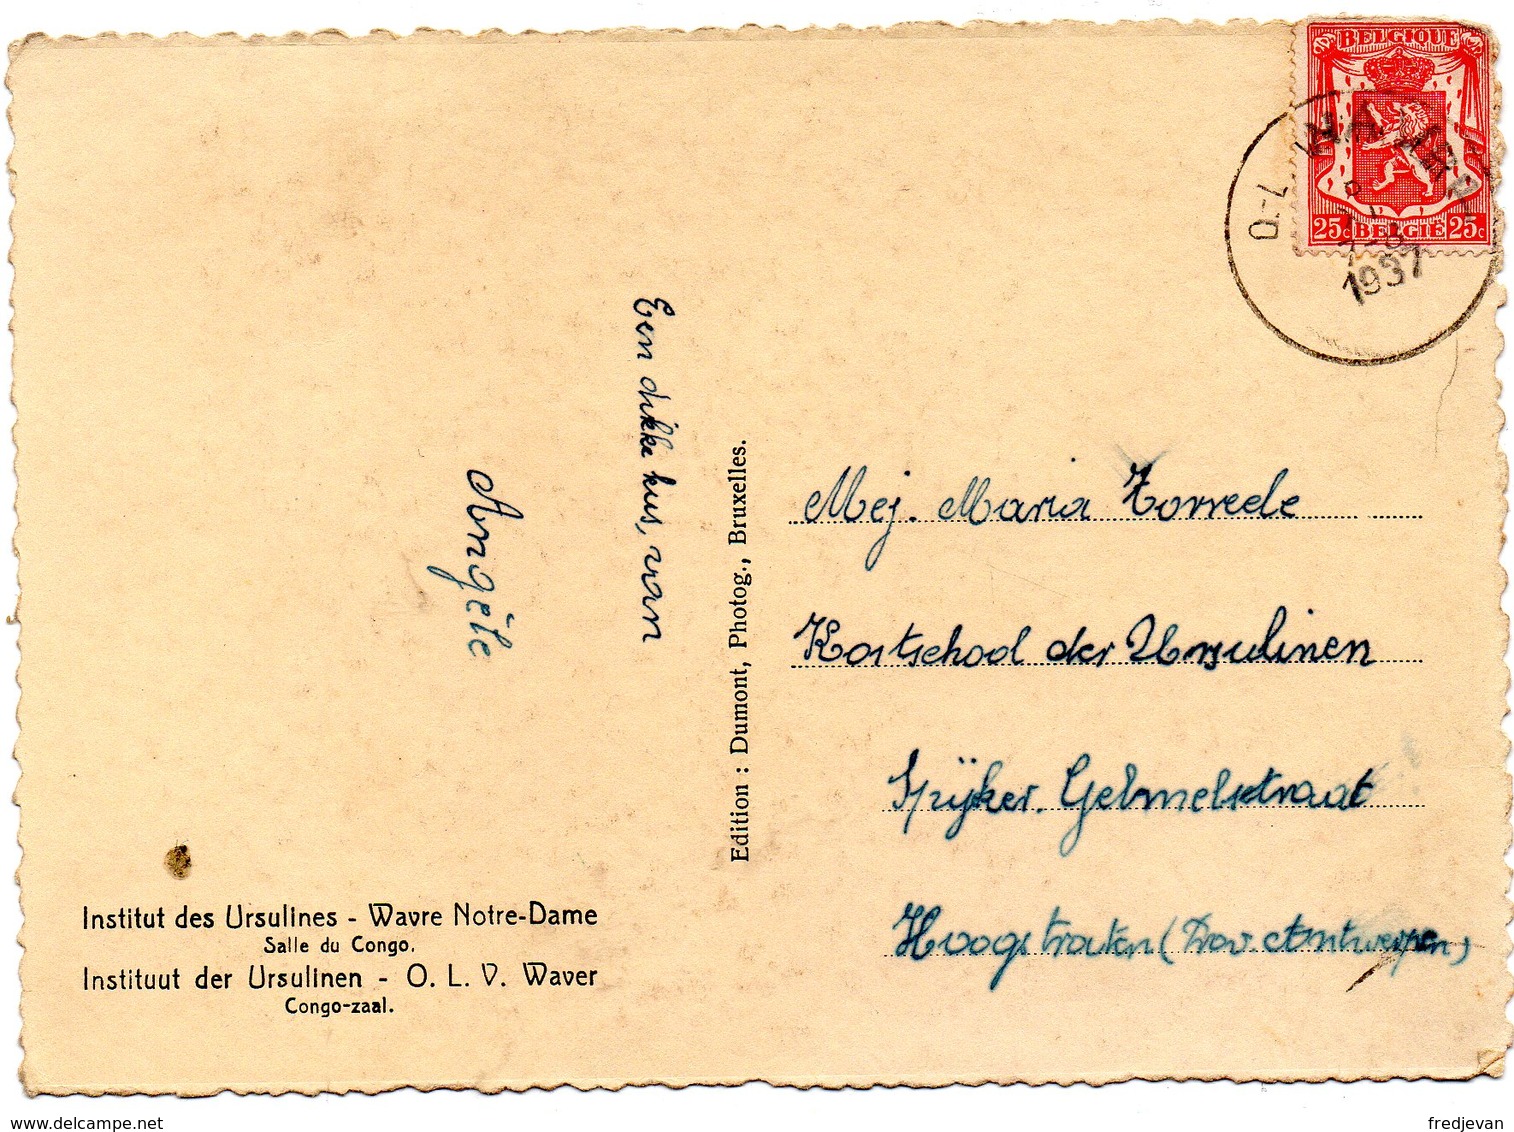 BELGIQUE
25c BELGIË 25c
O-L
WAVER
1937
Een dikke kus, van
Angèle
Edition : Dumont, Photog., Bruxelles.
Mej. Maria Torreele
Kostschool der Ursulinen
Spijker. Gelmelstraat
Hoogstraten (Prov Antwerpen)
Institut des Ursulines - Wavre Notre-Dame
Salle du Congo.
Instituut der Ursulinen - O. L. V. Waver
Congo-zaal.
www.delcampe.net
fredjevan